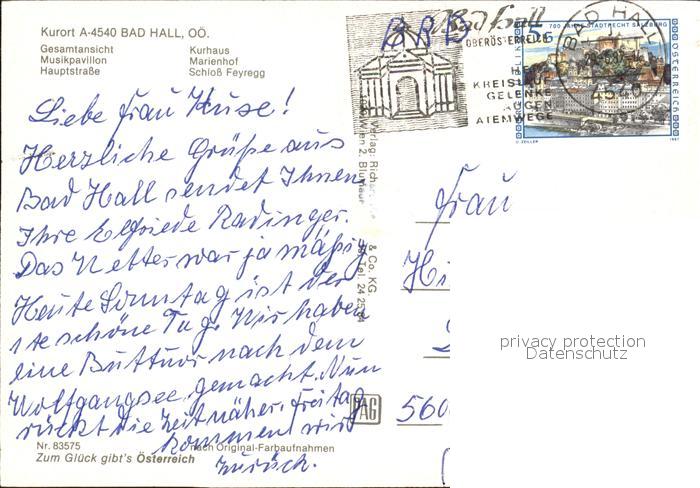 Kurort A-4540 BAD HALL, OÖ.
Gesamtansicht Kurhaus
Musikpavillon Marienhof
Hauptstraße Schloß Feyregg
Liebe Frau Huse!
Herzliche Grüße aus
Bad Hall sendet Ihnen
Ihre Elfriede Radinger.
Das Wetter war ja mäßig
Heute Sonntag ist der
1te schöne Tag. Wir haben
eine Busttour nach dem
Wolfgangsee gemacht. Nun
rückt die Zeit näher. Freitag
kommen wir
zurück.
Nr. 83575 nach Original-Farbaufnahmen
Zum Glück gibt's Österreich
Verlag: Richard & Co. KG
Wien 2, Tel. 24 25
PAG
BRD
Bad Hall
OBERÖSTERREICH
HERZ
KREISLAUF
GELENKE
AUGEN
ATEMWEGE
BAD HALL
4540
700 JAHRE STADTRECHT SALZBURG
5 S
REPUBLIK
ÖSTERREICH
O. ZEILLER 1987
Frau
Hi
560
privacy protection
Datenschutz